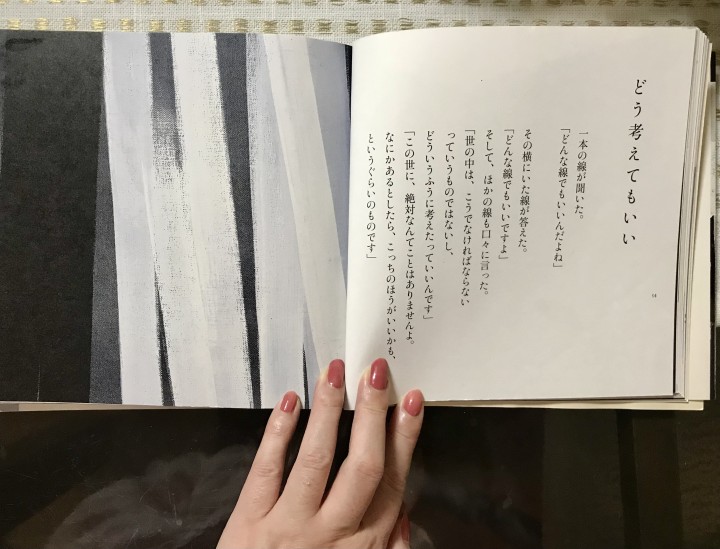 どう考えてもいい
一本の線が聞いた。
「どんな線でもいいんだよね」
その横にいた線が答えた。
「どんな線でもいいですよ」
そして、ほかの線も口々に言った。
「世の中は、こうでなければならない
っていうものではないし、
どういうふうに考えたっていいんです」
「この世に、絶対なんてことはありませんよ。
なにかあるとしたら、こっちのほうがいいかも、
というぐらいのものです」